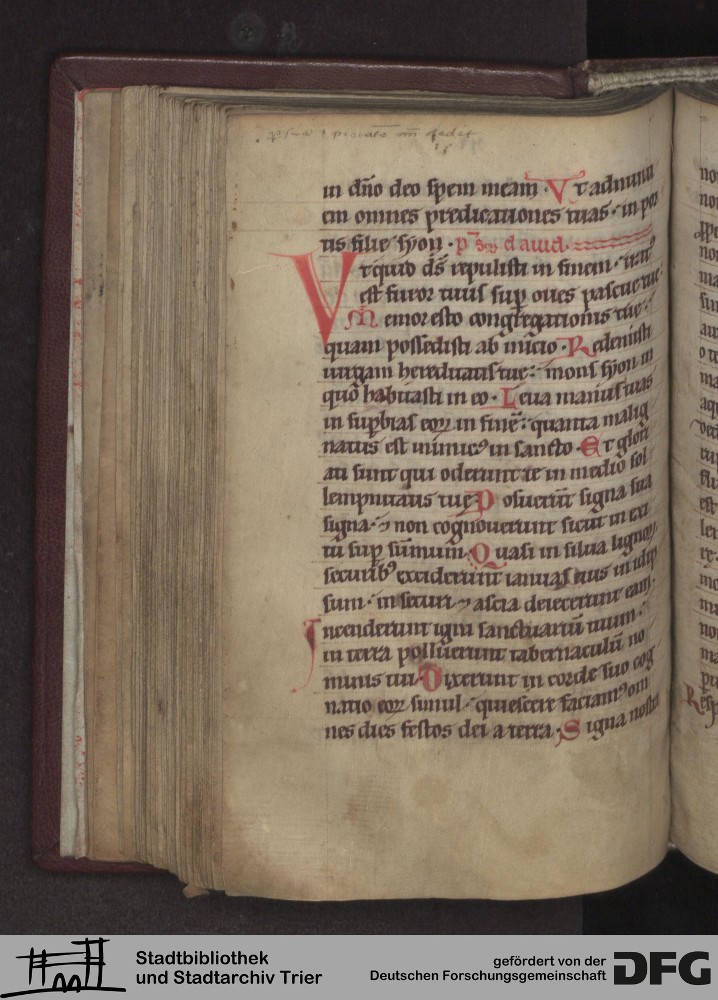 in dño deo spem meam · Vt adnunti
em omnes predicationes tuas · in por
tis filie syon · dauid ·
Vt quid ds̄ repulisti in finem · irat⁹
est furor tuus sup̄ oues pascue tue ·
Memor esto congregationis tue ·
quam possedisti ab inicio · Redemisti
uirgam hereditatis tue : mons syon in
quo habitasti in eo · Leua manus tuas
in sup̄bias eoꝝ in finē : quanta malig
natus est inimic⁹ in sancto · Et glori
ati sunt qui oderunt te in medio sol
lempnitatis tue Posuerūt signa sua
signa · ⁊ non cognouerunt sicut in exi
tu sup̄ sūmum · Quasi in silua lignoꝝ
securib⁹ exciderunt ianuas eius in idip
sum · in securi ⁊ ascia deiecerunt eam ·
Incenderunt igni sanctuariū tuum :
in terra polluerunt tabernaculū no
minis tui · Dixerunt in corde suo cog
natio eoꝝ simul · quiescere faciam⁹ om
nes dies festos dei a terra · Signa nostra
Stadtbibliothek
und Stadtarchiv Trier
gefördert von der
Deutschen Forschungsgemeinschaft
DFG